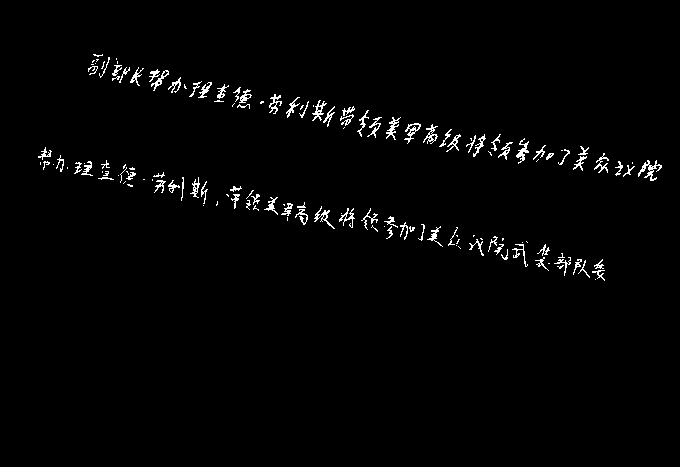 副部长帮办理查德·劳利斯带领美军高级将领参加了美众议院
帮办理查德·劳利斯，带领美军高级将领参加了美众议院武装部队委